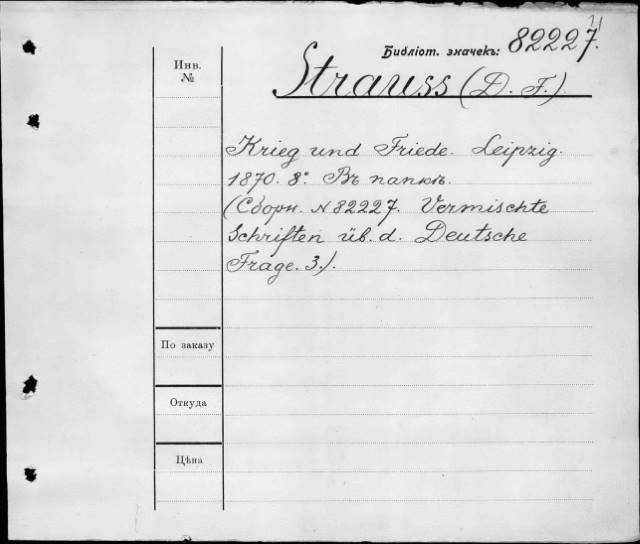 Библіот. значекъ: 82227.
Инв.
№
Strauss (D. F.).
Krieg und Friede. Leipzig.
1870. 8°. Въ папкѣ.
(Сборн. N 82227. Vermischte
Schriften üb. d. Deutsche
Frage. 3.).
По заказу
Откуда
Цѣна